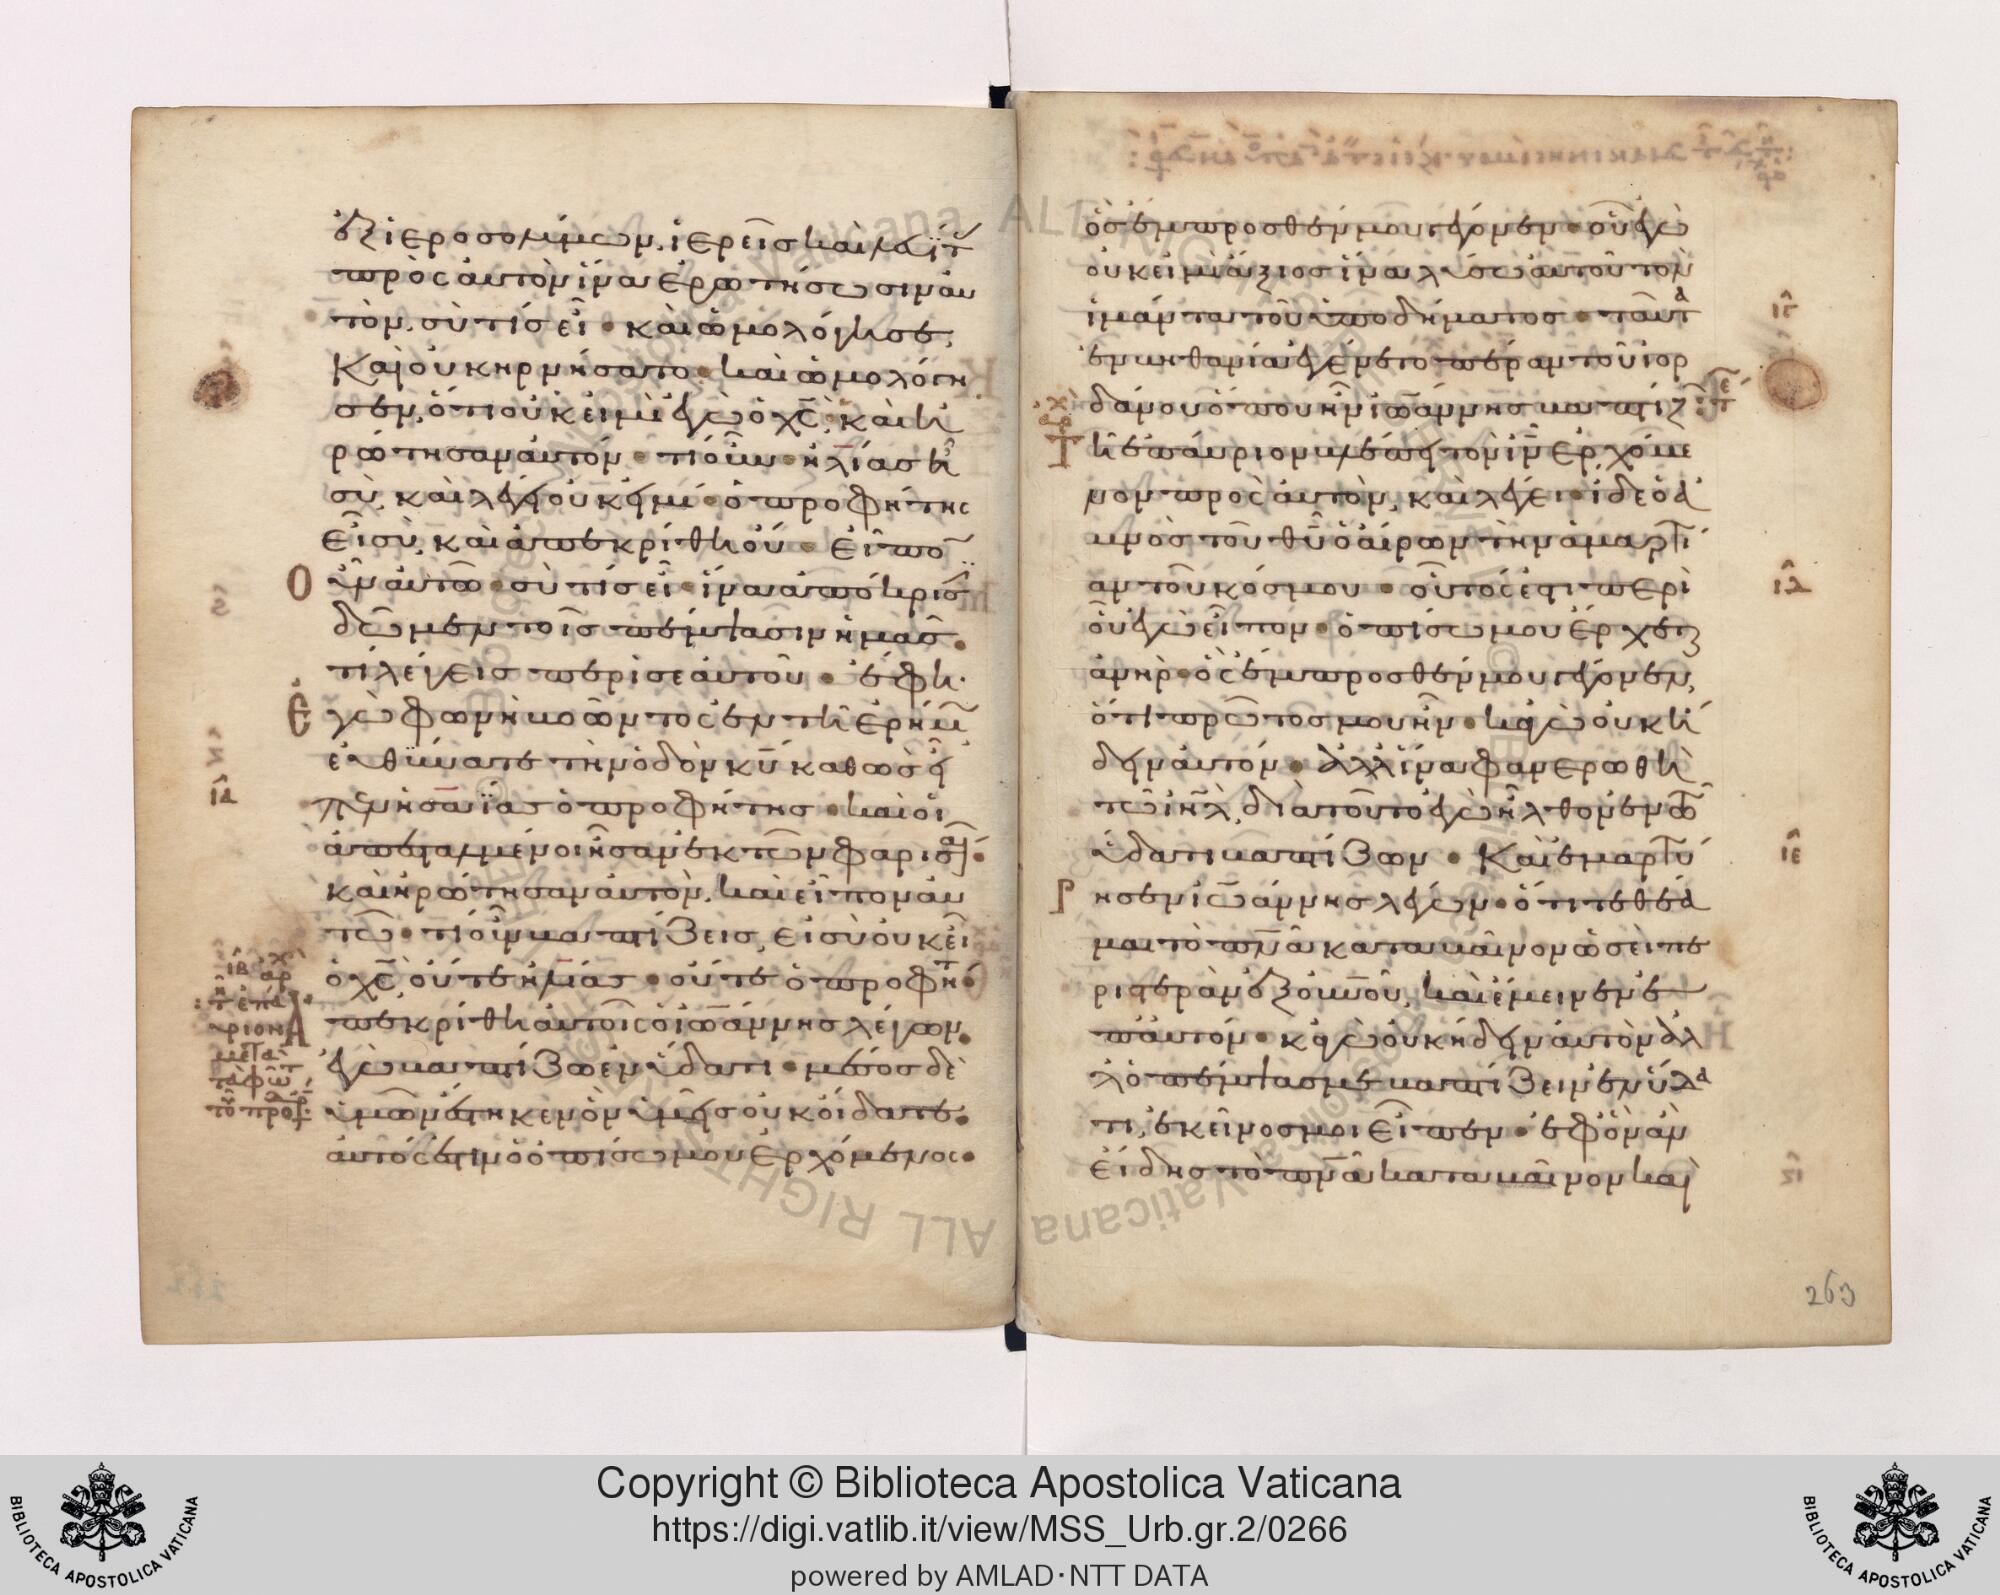 ἐξ ἱεροσολύμων ἱερεῖς καὶ λευΐτ
πρὸς αὐτὸν ἵνα ἐρωτήσωσιν αυ
τὸν, σὺ τίς εἶ · καὶ ὡμολόγησε,
Καὶ οὐκ ηρνήσατο · καὶ ὡμολόγη
σεν, ὅτι οὐκ εἰμὶ ἐγὼ ὁ χς̄, καὶ ἠ
ρώτησαν αυτόν · τί οὖν · ἠλίας εἶ
σὺ, καὶ λέγει οὐκ εἰμί · ὁ προφήτης
εἶ σὺ, καὶ ἀπεκρίθη οὔ · εἶπο
Ο ὖν αὐτῶ · σὺ τίς εἶ · ἵνα ἀπόκρισ
δῶμεν τοῖς πέμψασιν ἡμᾶς ·
τί λέγεις περὶ σεαυτοῦ · ἔφη ·
Ἐ γὼ φωνὴ βοῶντος ἐν τῆ ἐρήμ
εὐθύνατε τὴν ὁδὸν κῡ καθὼς εἶ
πεν ἡσαΐας ὁ προφήτης · καὶ οἱ
ἀπεσταλμένοι ἦσαν ἐκ τῶν φαρισ ·
καὶ ἠρώτησαν αὐτὸν, καὶ εἶπον αυ
τῶ · τί οὖν βαπτίζεις, εἰ σὺ οὐκ εἶ
ὁ χς̄, οὔτε ἠλίας · οὔτε ὁ προφήτ ·
Α πεκρίθη αὐτοῖς ὁ ἰωάννης λέγων ·
ἐγὼ βαπτίζω ἐν ὕδατι · μέσος δὲ
ὑμῶν ἕστηκεν ὃν ὑμεῖς οὐκ οἴδατε ·
αὐτός ἐστιν ὁ ὀπίσω μου ἐρχόμενος ·
ια
ιβ
ὃς ἔμπροσθέν μου γέγονεν · οὗ ἐγὼ
οὐκ εἰμὶ ἄξιος ἵνα λύσω αὐτοῦ τὸν
ἱμάντα τοῦ ὑποδήματος · ταῦτ
ἐν βηθανία ἐγένετο πέραν τοῦ ἰορ
δάνου ὅπου ἦν ἰωάννης βαπτίζ
Τ ῆ ἐπαύριον βλέπει τὸν ιν̄ ἐρχόμε
νον πρὸς αὐτὸν, καὶ λέγει · ἴδε ὁ ἀ
μνὸς τοῦ θῡ ὁ αἴρων τὴν ἁμαρτί
αν τοῦ κόσμου · οὗτός ἐστι περὶ
οὗ ἐγὼ εἶπον · ὀπίσω μου ἔρχεται
ἀνὴρ · ὃς ἔμπροσθέν μου γέγονεν,
ὅτι πρῶτος μου ἦν · κἀγὼ οὐκ ἤ
δειν αὐτόν · ἀλλ' ἵνα φανερωθῆ
τῶ ιηλ̄, διὰ τοῦτο ἐγὼ ἦλθον ἐν τῶ
ὕδατι βαπτίζων · Καὶ ἐμαρτύ
ρ ησεν ἰωάννης λέγων · ὅτι τεθέα
μαι τὸ πνᾱ καταβαῖνον ὡσεὶ πε
ριστερὰν ἐξ οὐνοῦ, καὶ ἔμεινεν ἐ
π' αὐτόν · κἀγὼ οὐκ ἤδειν αὐτὸν ἀλ
λ' ὁ πέμψας με βαπτίζειν ἐν ὕδα
τι, ἐκεῖνος μοι εἶπεν · ἐφ' ὃν ἂν
ἴδης τὸ πνᾱ καταβαῖνον καὶ
ιγ
ιδ
ιε
263
Copyright © Biblioteca Apostolica Vaticana
https://digi.vatlib.it/view/MSS_Urb.gr.2/0266
powered by AMLAD·NTT DATA
BIBLIOTECA APOSTOLICA VATICANA
BIBLIOTECA APOSTOLICA VATICANA